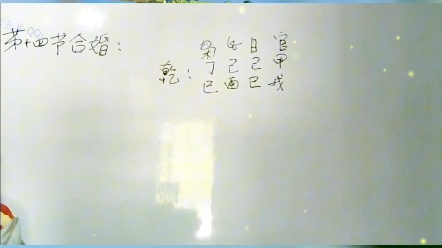 第十四节合婚：
枭 日 官
乾：丁 己 己 甲
巳 酉 巳 戌